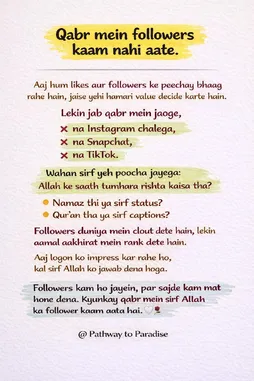 Qabr mein followers
kaam nahi aate.
Aaj hum likes aur followers ke peechay bhaag
rahe hain, jaise yehi hamari value decide karte hain.
Lekin jab qabr mein jaoge,
❌ na Instagram chalega,
❌ na Snapchat,
❌ na TikTok.
Wahan sirf yeh poocha jayega:
Allah ke saath tumhara rishta kaisa tha?
Namaz thi ya sirf status?
Qur'an tha ya sirf captions?
Followers duniya mein clout dete hain, lekin
aamal aakhirat mein rank dete hain.
Aaj logon ko impress kar rahe ho,
kal sirf Allah ko jawab dena hoga.
Followers kam ho jayein, par sajde kam mat
hone dena. Kyunkay qabr mein sirf Allah
ka follower kaam aata hai. 🤍🌹
@ Pathway to Paradise